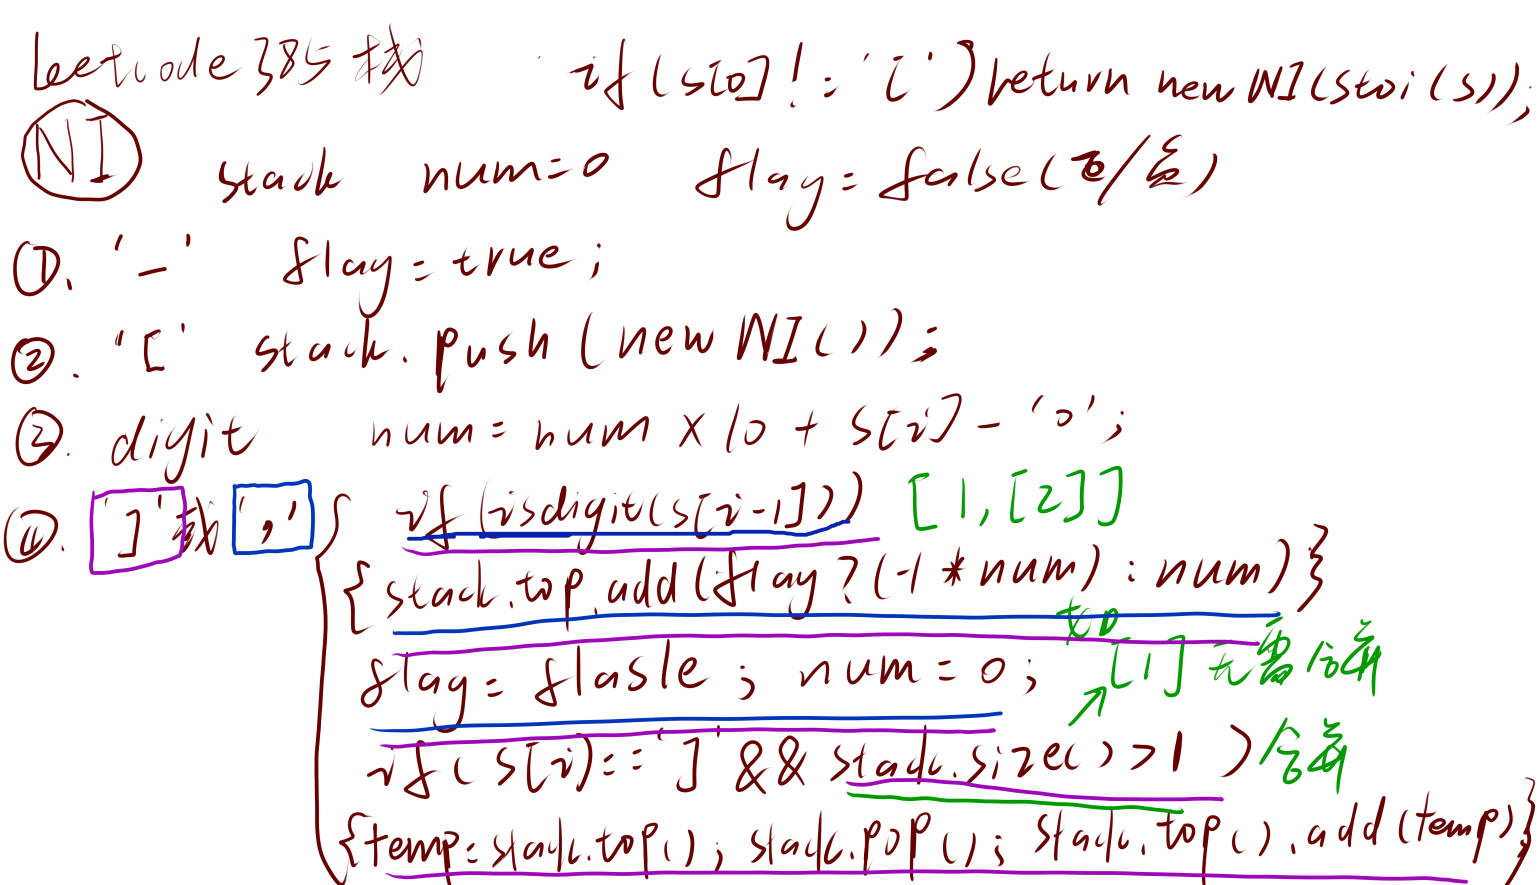 leetcode 385 栈 if(s[0]!='[')return new NI(stoi(s));
NI stack num=0 flag=false(正/负)
①. '-' flag=true;
②. '[' stack.push(new NI());
③. digit num=num×10+s[i]-'0';
④. ']'或',' { if(isdigit(s[i-1])) [1,[2]]
{stack.top.add(flag?(-1*num):num)}
top
flag=flasle; num=0; [1]无需合并
if(s[i]==']'&&stack.size()>1) 合并
{temp=stack.top(); stack.pop(); stack.top().add(temp)}